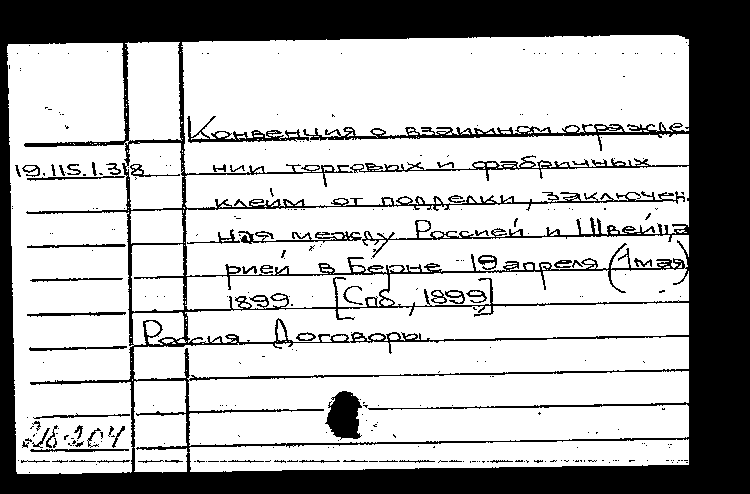 Конвенция о взаимном огражде-
19.115.1.318 нии торговых и фабричных
клейм от подделки, заключен-
ная между Россией и Швейца
рией в Берне 19 апреля (1 мая)
1899. [Спб., 1899]
Россия. Договоры.
218-204